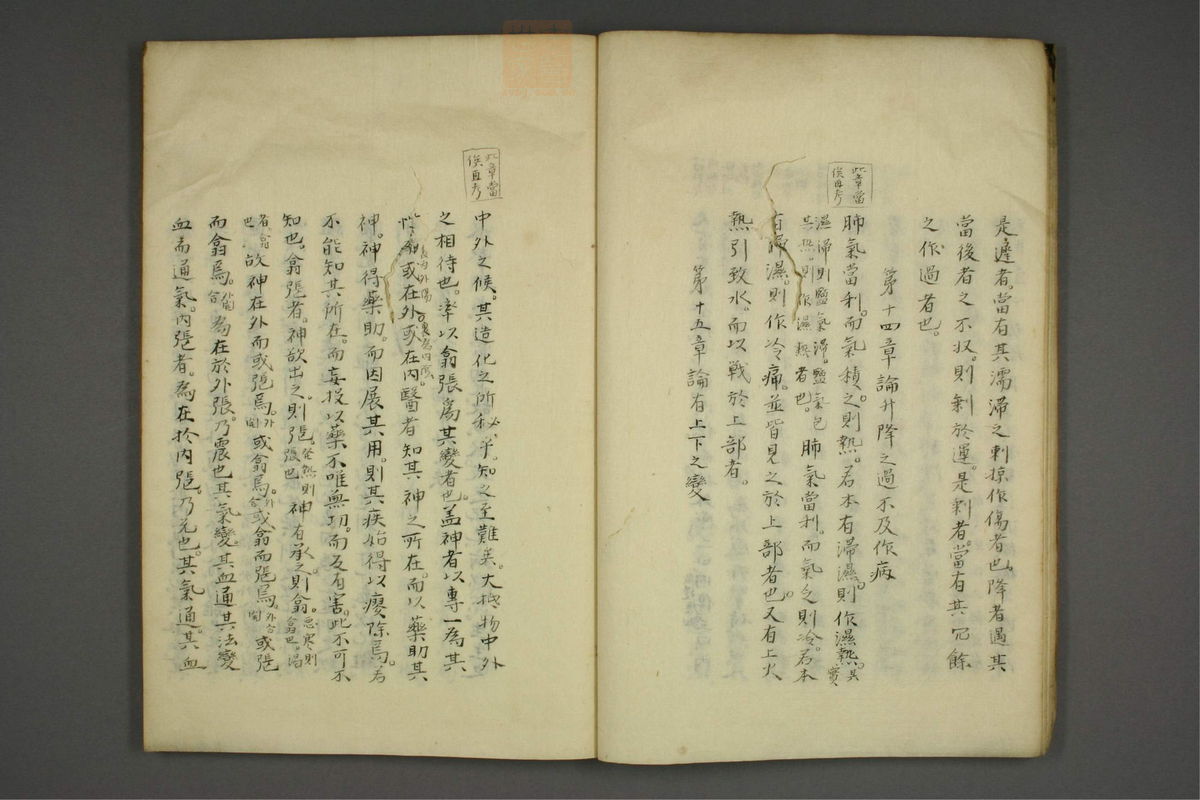 是遲者。當有其濡滯之刺掠作傷者也。降者過其
當後者之不収。則剩於運。是剩者。當有其冗餘
之作過者也。
第十四章論升降之過不及作病
此章當
俟再考
肺氣當利。而氣積之。則熱。若本有滯濕。則作濕熱。其實
濕滯則鹽氣滯。鹽氣包
其熱。則作濕熱者也。肺氣當利。而氣乏則冷。若本
有滯濕。則作冷痛。並皆見之於上部者也。又有上火
熱引致水。而以戦於上部者。
第十五章論有上下之變
此章當
俟再考
中外之候。其造化之所秘乎。知之至難矣。大抵物中外
之相待也。率以翕張爲其變者也。盖神者以專一為其
性。或在外或在内。醫者知其神之所在。而以藥助其
表為外陽
裏為内陰
神。神得藥助。而因展其用。則其疾始得以瘳除焉。若
不能知其所在。而妄投以藥。不唯無功。而反有害。此不可不
知也。翕張者。神欲出之。則張。發熱則張也神有承之。則翕。惡寒則翕也
者。翕也。故神在外而或張焉。外開或翕焉。外合或翕而張焉。外合開或張
而翕焉。外開合為在於外張。乃震也。其氣變。其血通。其法變
血而通氣。内張者。為在於内張。乃兌也。其氣通。其血